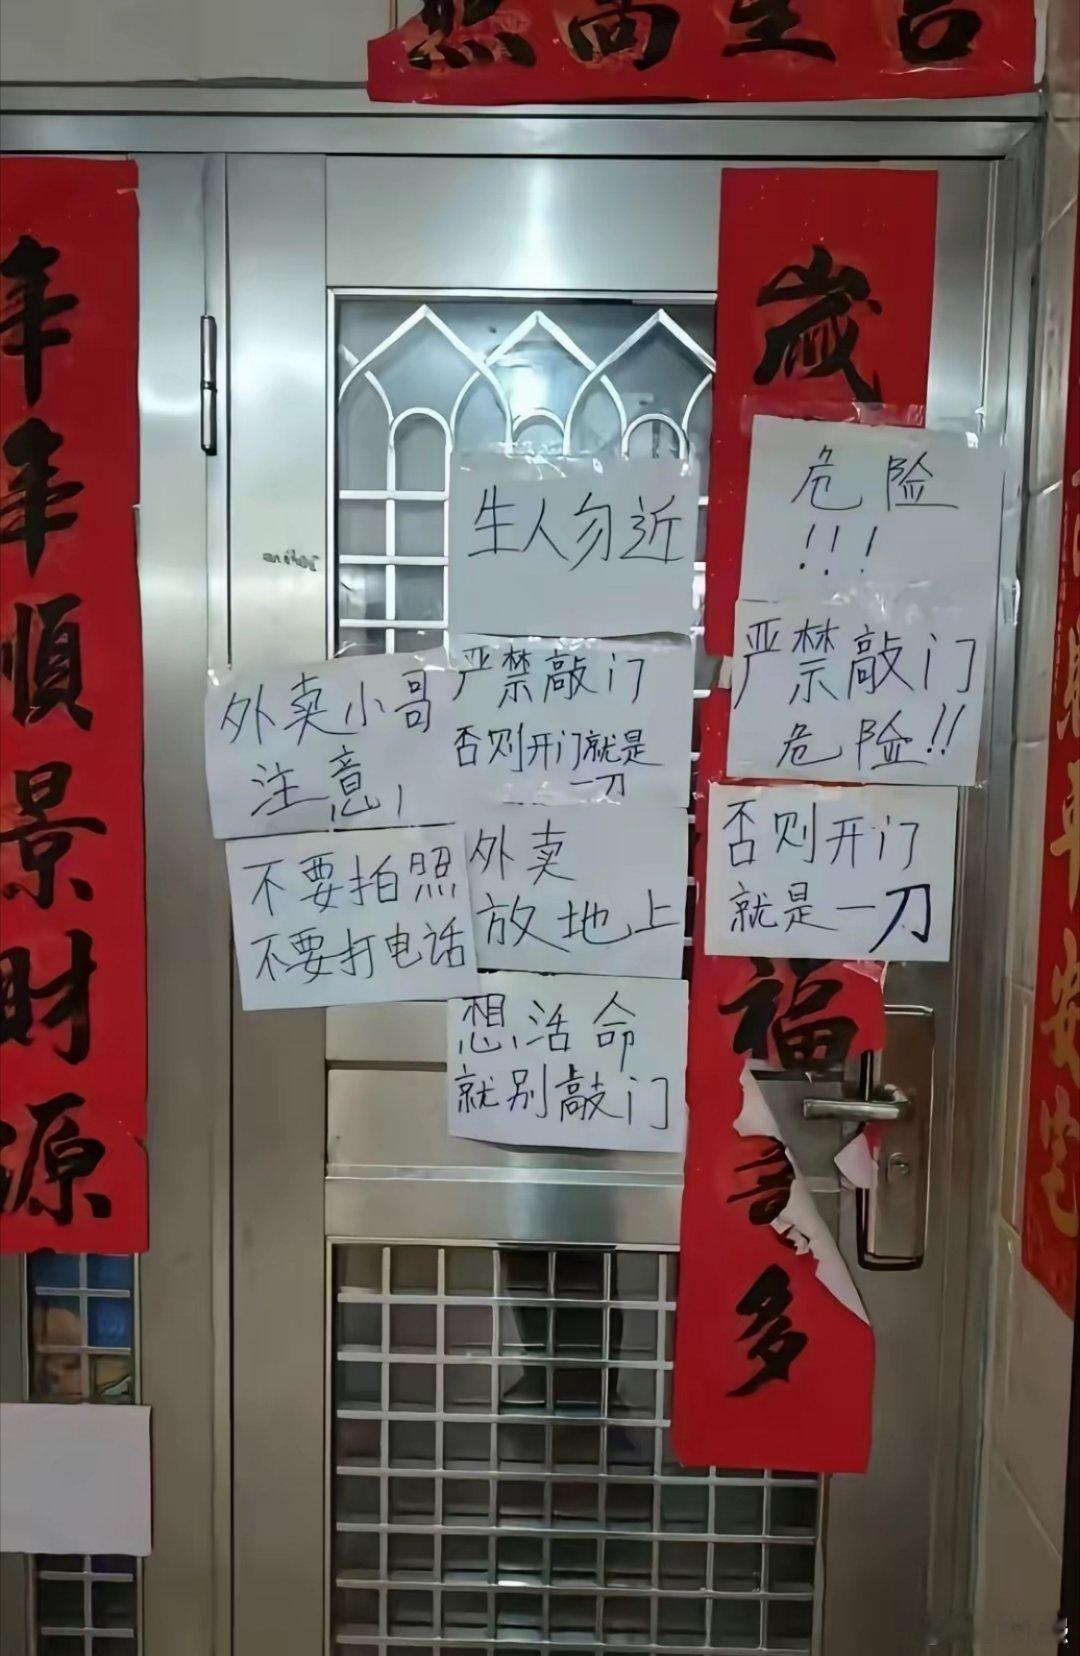 照尚生吉
年年順景財源
歲
福
多
生人勿近
危险
!!!
严禁敲门
危险!!
否则开门
就是一刀
严禁敲门
否则开门就是
一刀
外卖小哥
注意!
不要拍照
不要打电话
外卖
放地上
想活命
就别敲门
平安